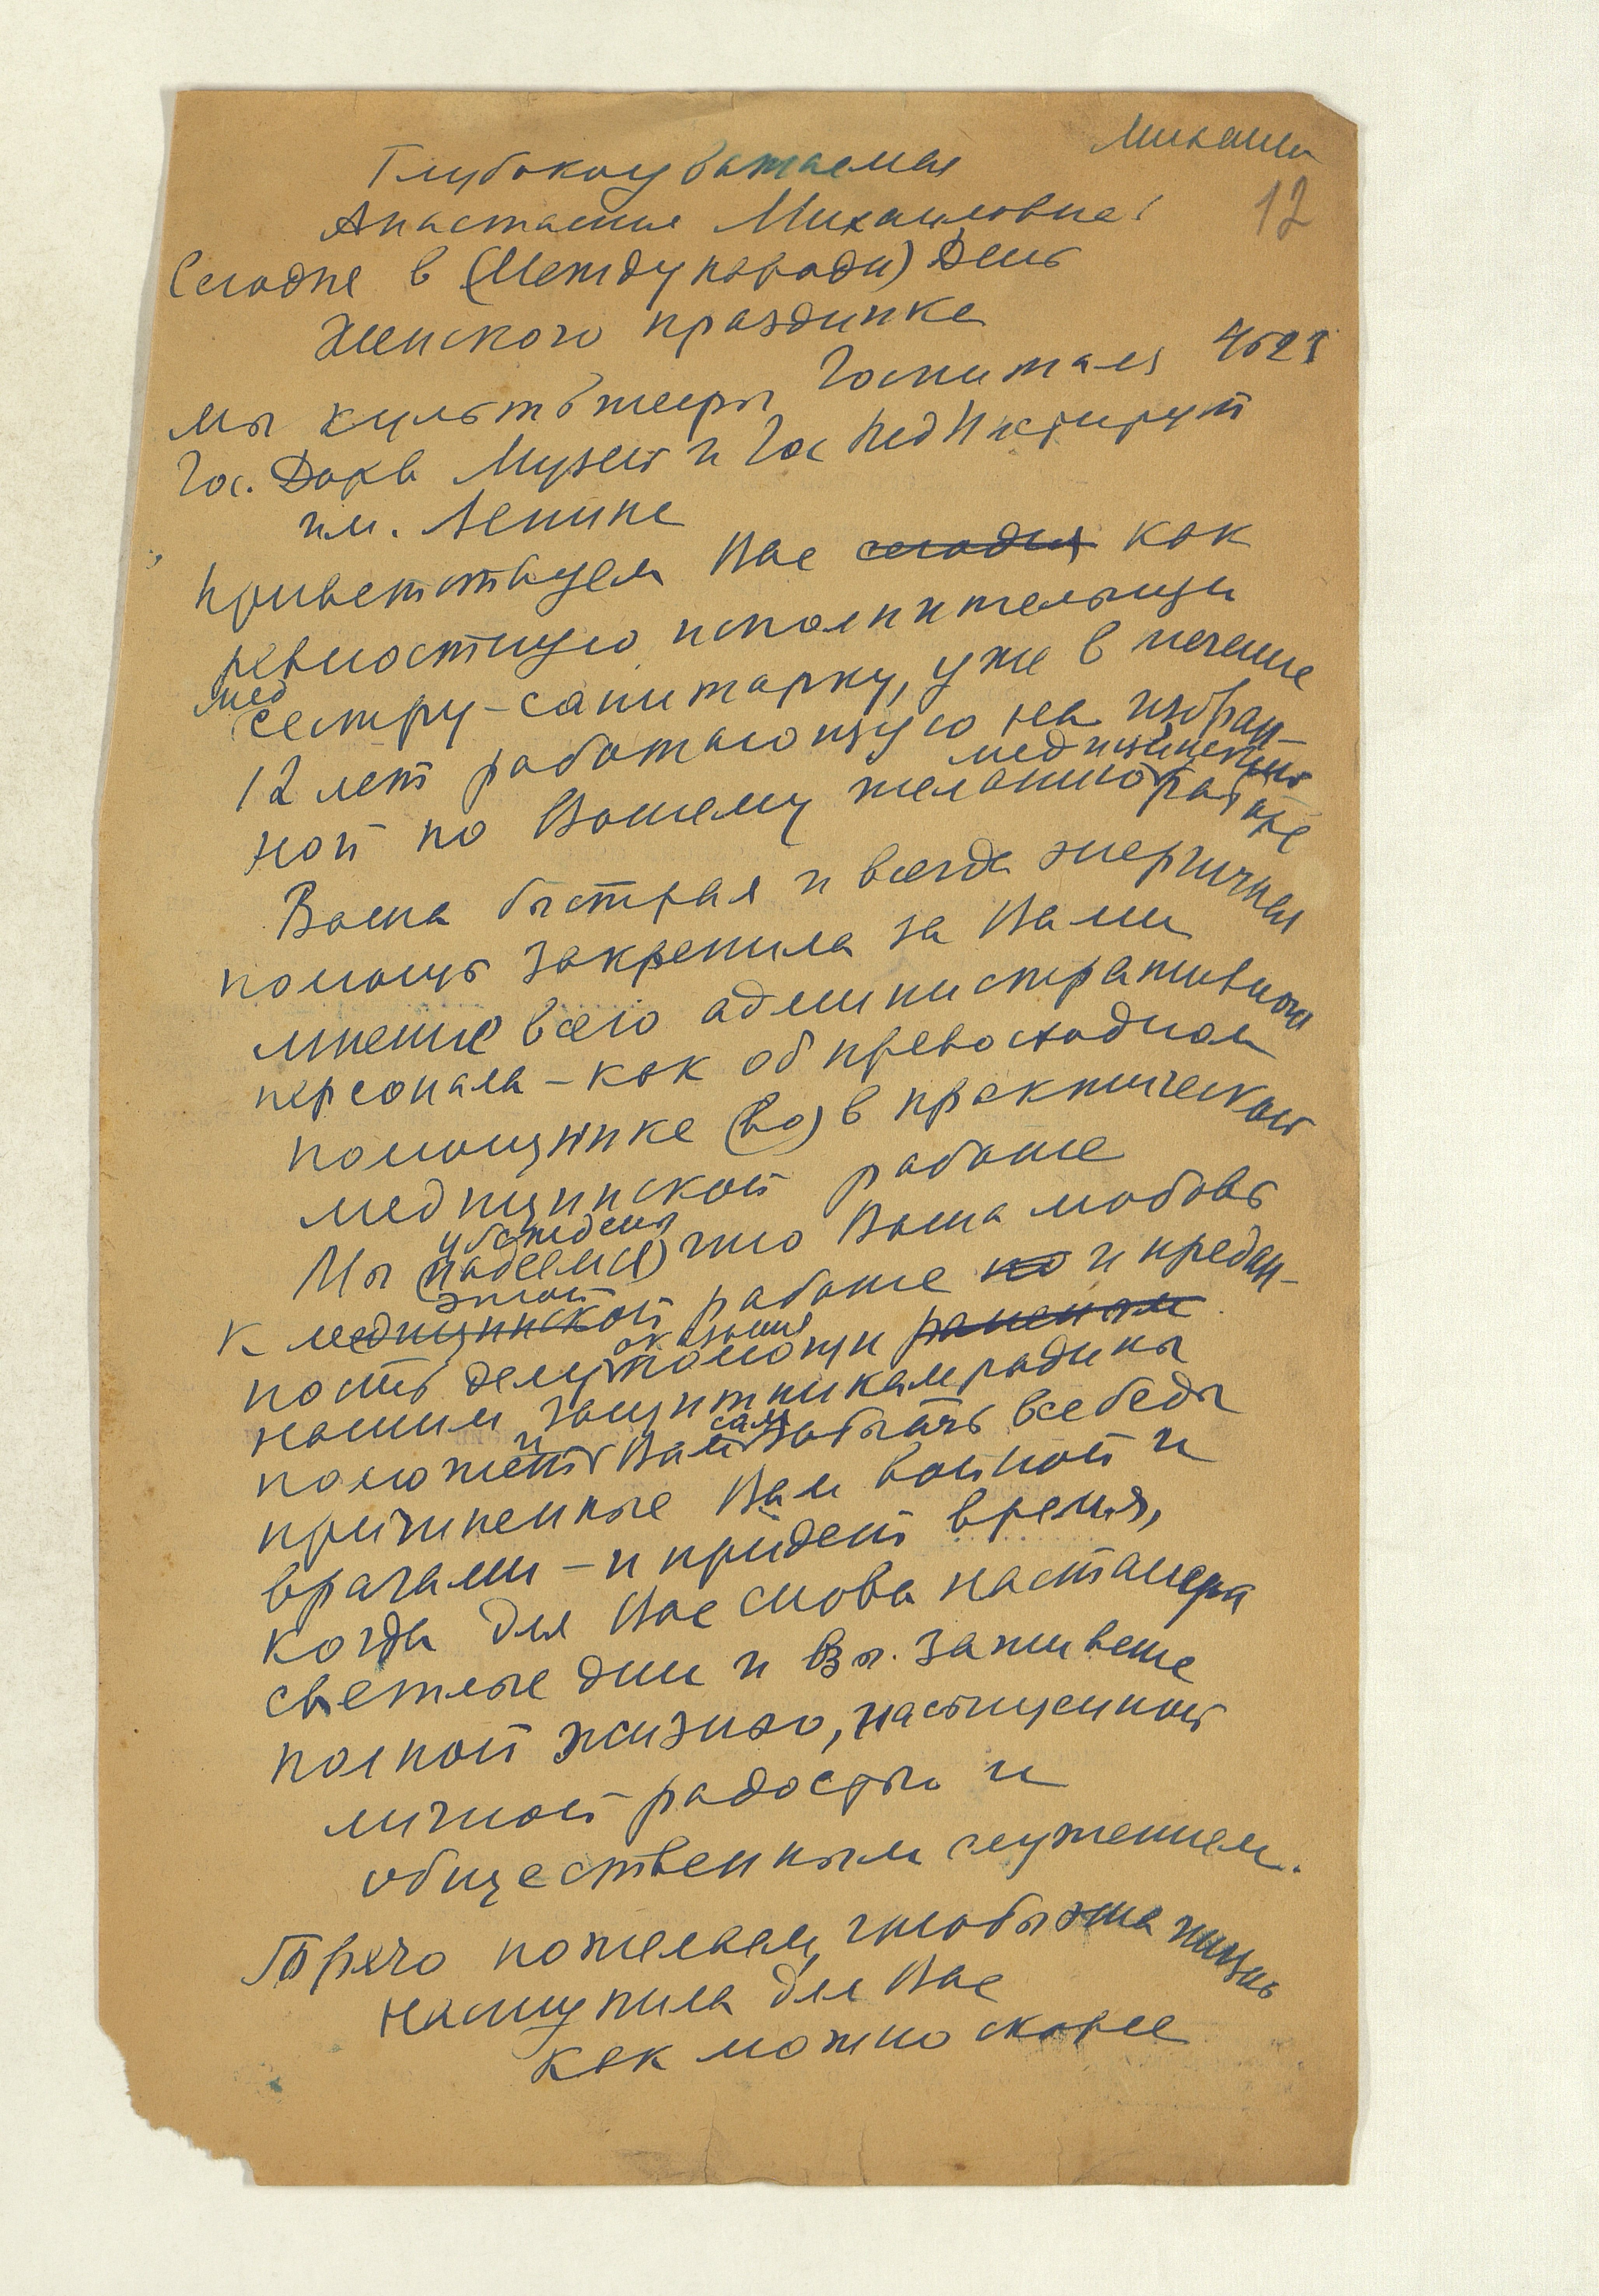 12
Глубокоуважаемая
Анастасия Михайловна!
Сегодня в (Международн) День
Женского праздника
мы культ шефы Госпиталя
Гос. Дарв Музей и Гос Пед Институт
им. Ленина
приветствуем Вас сегодня как
ревностную исполнительницу
мед
сестру-санитарку, уже в течение
12 лет работающую на избран-
медицинской
ной по Вашему желанию работе
Ваша быстрая и всегда энергичная
помощь закрепила за Вами
мнение всего административного
персонала – как об превосходном
помощнике (во) в практической
медицинской работе
убеждены
Мы (надеемся) что Ваша любовь
этой
к медицинской работе но и предан-
оказания
ность делу помощи раненым
нашим защитникам родины
и сами
поможет Вам забыть все беды
причиненные Вам войной и
врагами – и придет время,
когда для Вас снова настанут
светлые дни и Вы заживете
полной жизнью, насыщенной
личной радостью и
общественным служением.
Горячо пожелаем, чтобы эта жизнь
наступила для Вас
как можно скорее